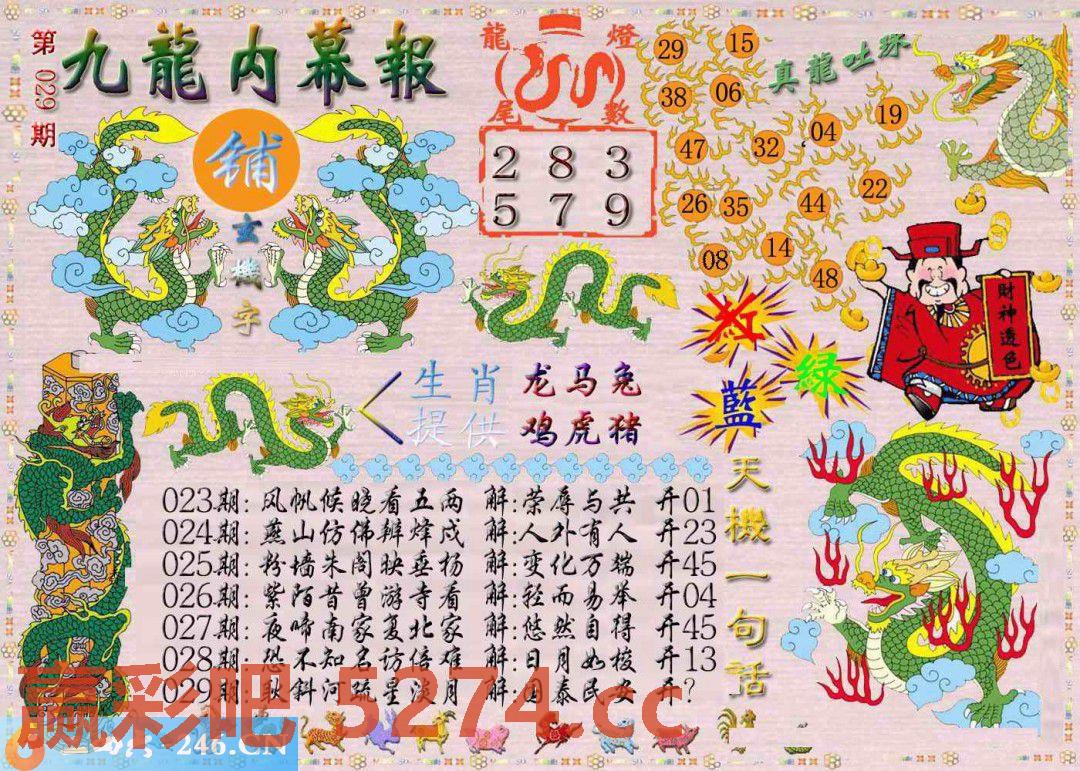 第029期
九龍内幕報
舖
玄機字
龍燈
尾數
2 8 3
5 7 9
真龍吐珠
29 15
38 06
47 32 04 19
26 35 44 22
08 14 48
紅
綠
藍
財神透色
生肖 龙马兔
提供 鸡虎猪
天機一句話
023期: 风帆候晓看五两 解:荣辱与共 开01
024期: 燕山仿佛辨烽戍 解:人外有人 开23
025期: 粉墙朱阁映垂杨 解:变化万端 开45
026期: 紫陌昔曾游寺看 解:轻而易举 开04
027期: 夜啼南家复北家 解:悠然自得 开45
028期: 恐不知名访倍难 解:日月如梭 开13
029期: 耿斜河疏星淡月 解:国泰民安 开?
赢彩吧 5274.cc
246.CN